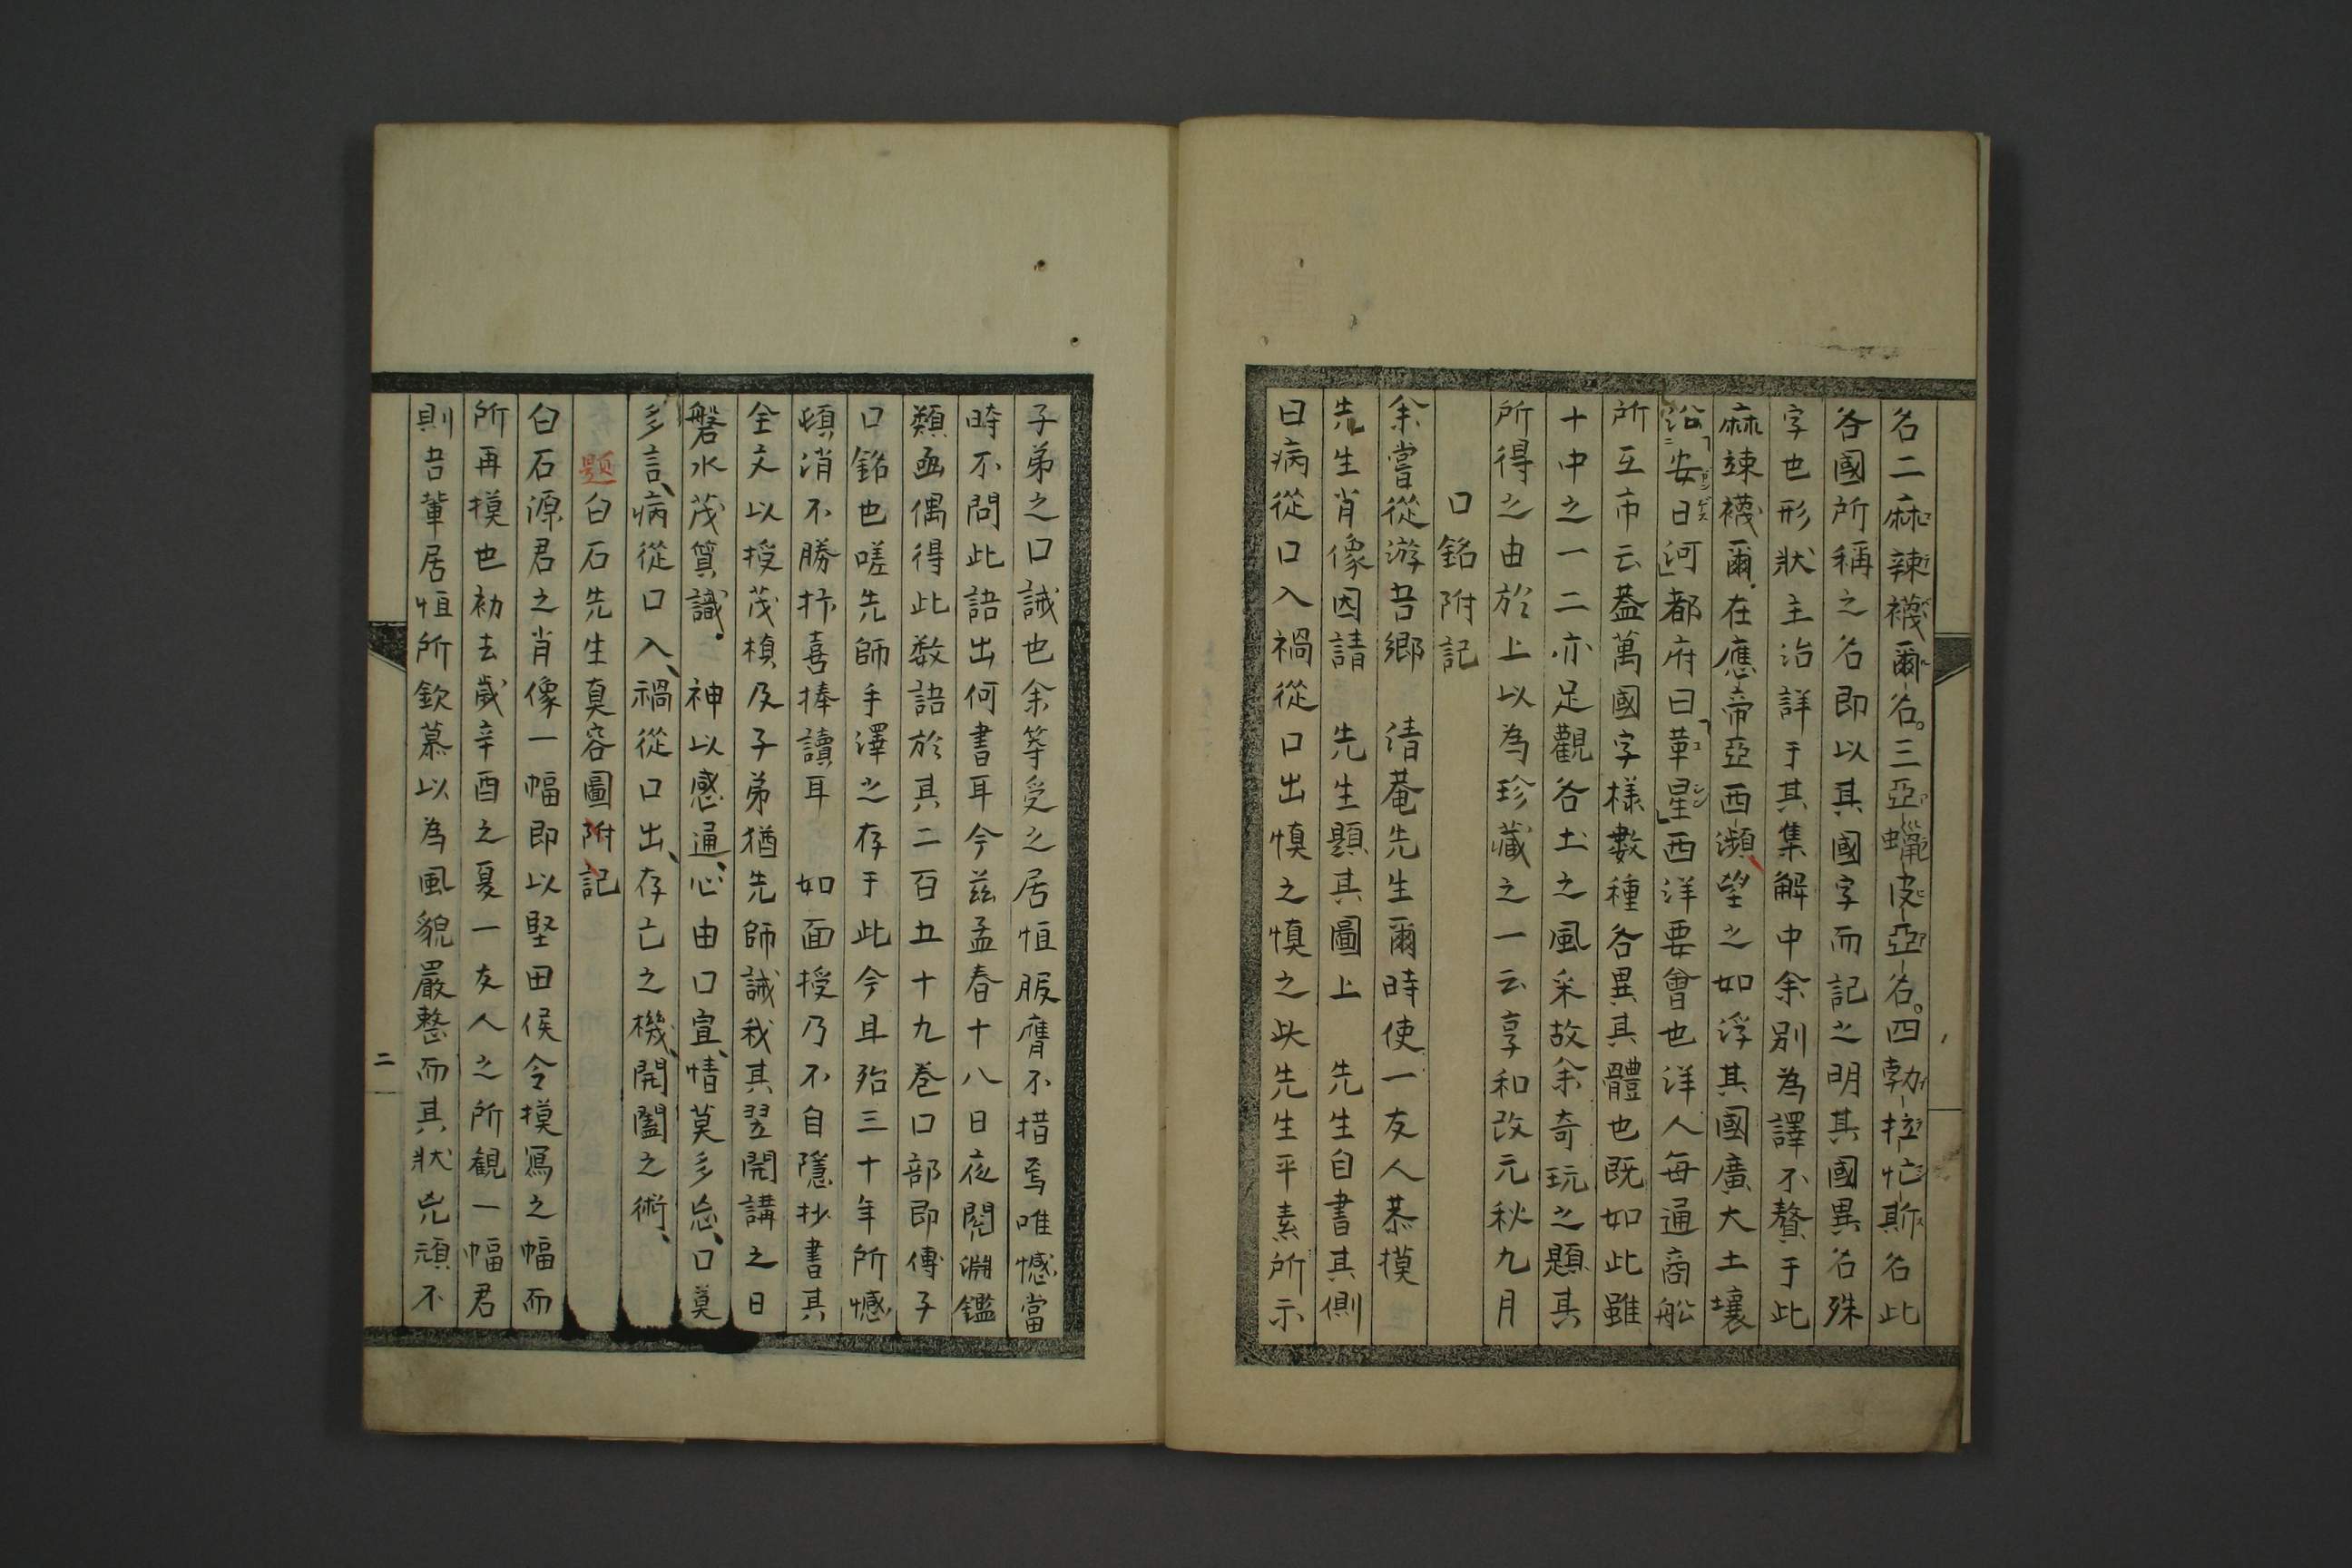 名二麻辣襪爾名。三亞蠟皮亞名。四勃拉忙斯名此
各國所稱之名即以其國字而記之明其國異名殊
字也形狀主治詳于其集解中余別為譯不贅于此
麻竦襪爾在應帝亞西瀕望之如浮其國廣大土壤
沿「安日河」都府曰「革星」西洋要會也洋人每通商舩
所互市云蓋萬國字樣數種各異其體也既如此雖
十中之一二亦足觀各土之風采故余奇玩之題其
所得之由於上以為珍藏之一云享和改元秋九月
口銘附記
余嘗從游吾鄉 清菴先生爾時使一友人恭摸
先生肖像因請 先生題其圖上 先生自書其側
曰病從口入禍從口出慎之慎之此先生平素所示
子弟之口誡也余等受之居恒服膺不措焉唯憾當
時不問此語出何書耳今茲孟春十八日夜閲淵鑑
類函偶得此数語於其二百五十九卷口部即傅子
口銘也嗟先師手澤之存于此今且殆三十年所憾
頓消不勝抃喜捧讀耳 如面授乃不自隱抄書其
全文以授茂楨及子弟猶先師誡我其翌開講之日
磐水茂質識。 神以感通、心由口宣、情莫多忘、口莫
多言、病從口入、禍從口出、存亡之機、開闔之術、
題白石先生真容圖附記
白石源君之肖像一幅即以堅田侯令摸寫之幅而
所再摸也初去歲辛酉之夏一友人之所觀一幅君
則吾輩居恒所欽慕以為風貌嚴整而其狀兇頑不
二